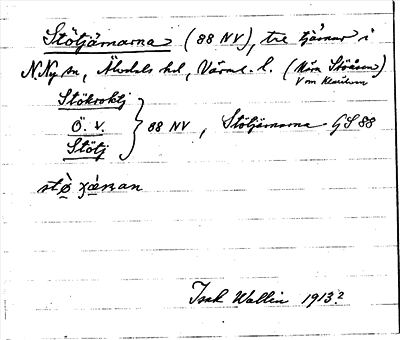 Stötjärnarna (88 NV), tre tjärnar i
N.Ny sn, Älvdals hd, Värml. l. (Nära Stöåsen)
V om Klarälven
Stökroktj
Ö. V. } 88 NV, Stötjärnarna GS 88
Stötj
stø̀ ɟæ̀nan
Isak Wallin 1913?